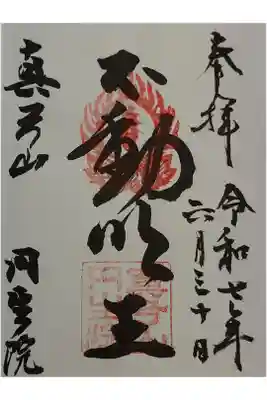 奉拝
令和七年
六月三十日
不動明王
真弓山
円聖院